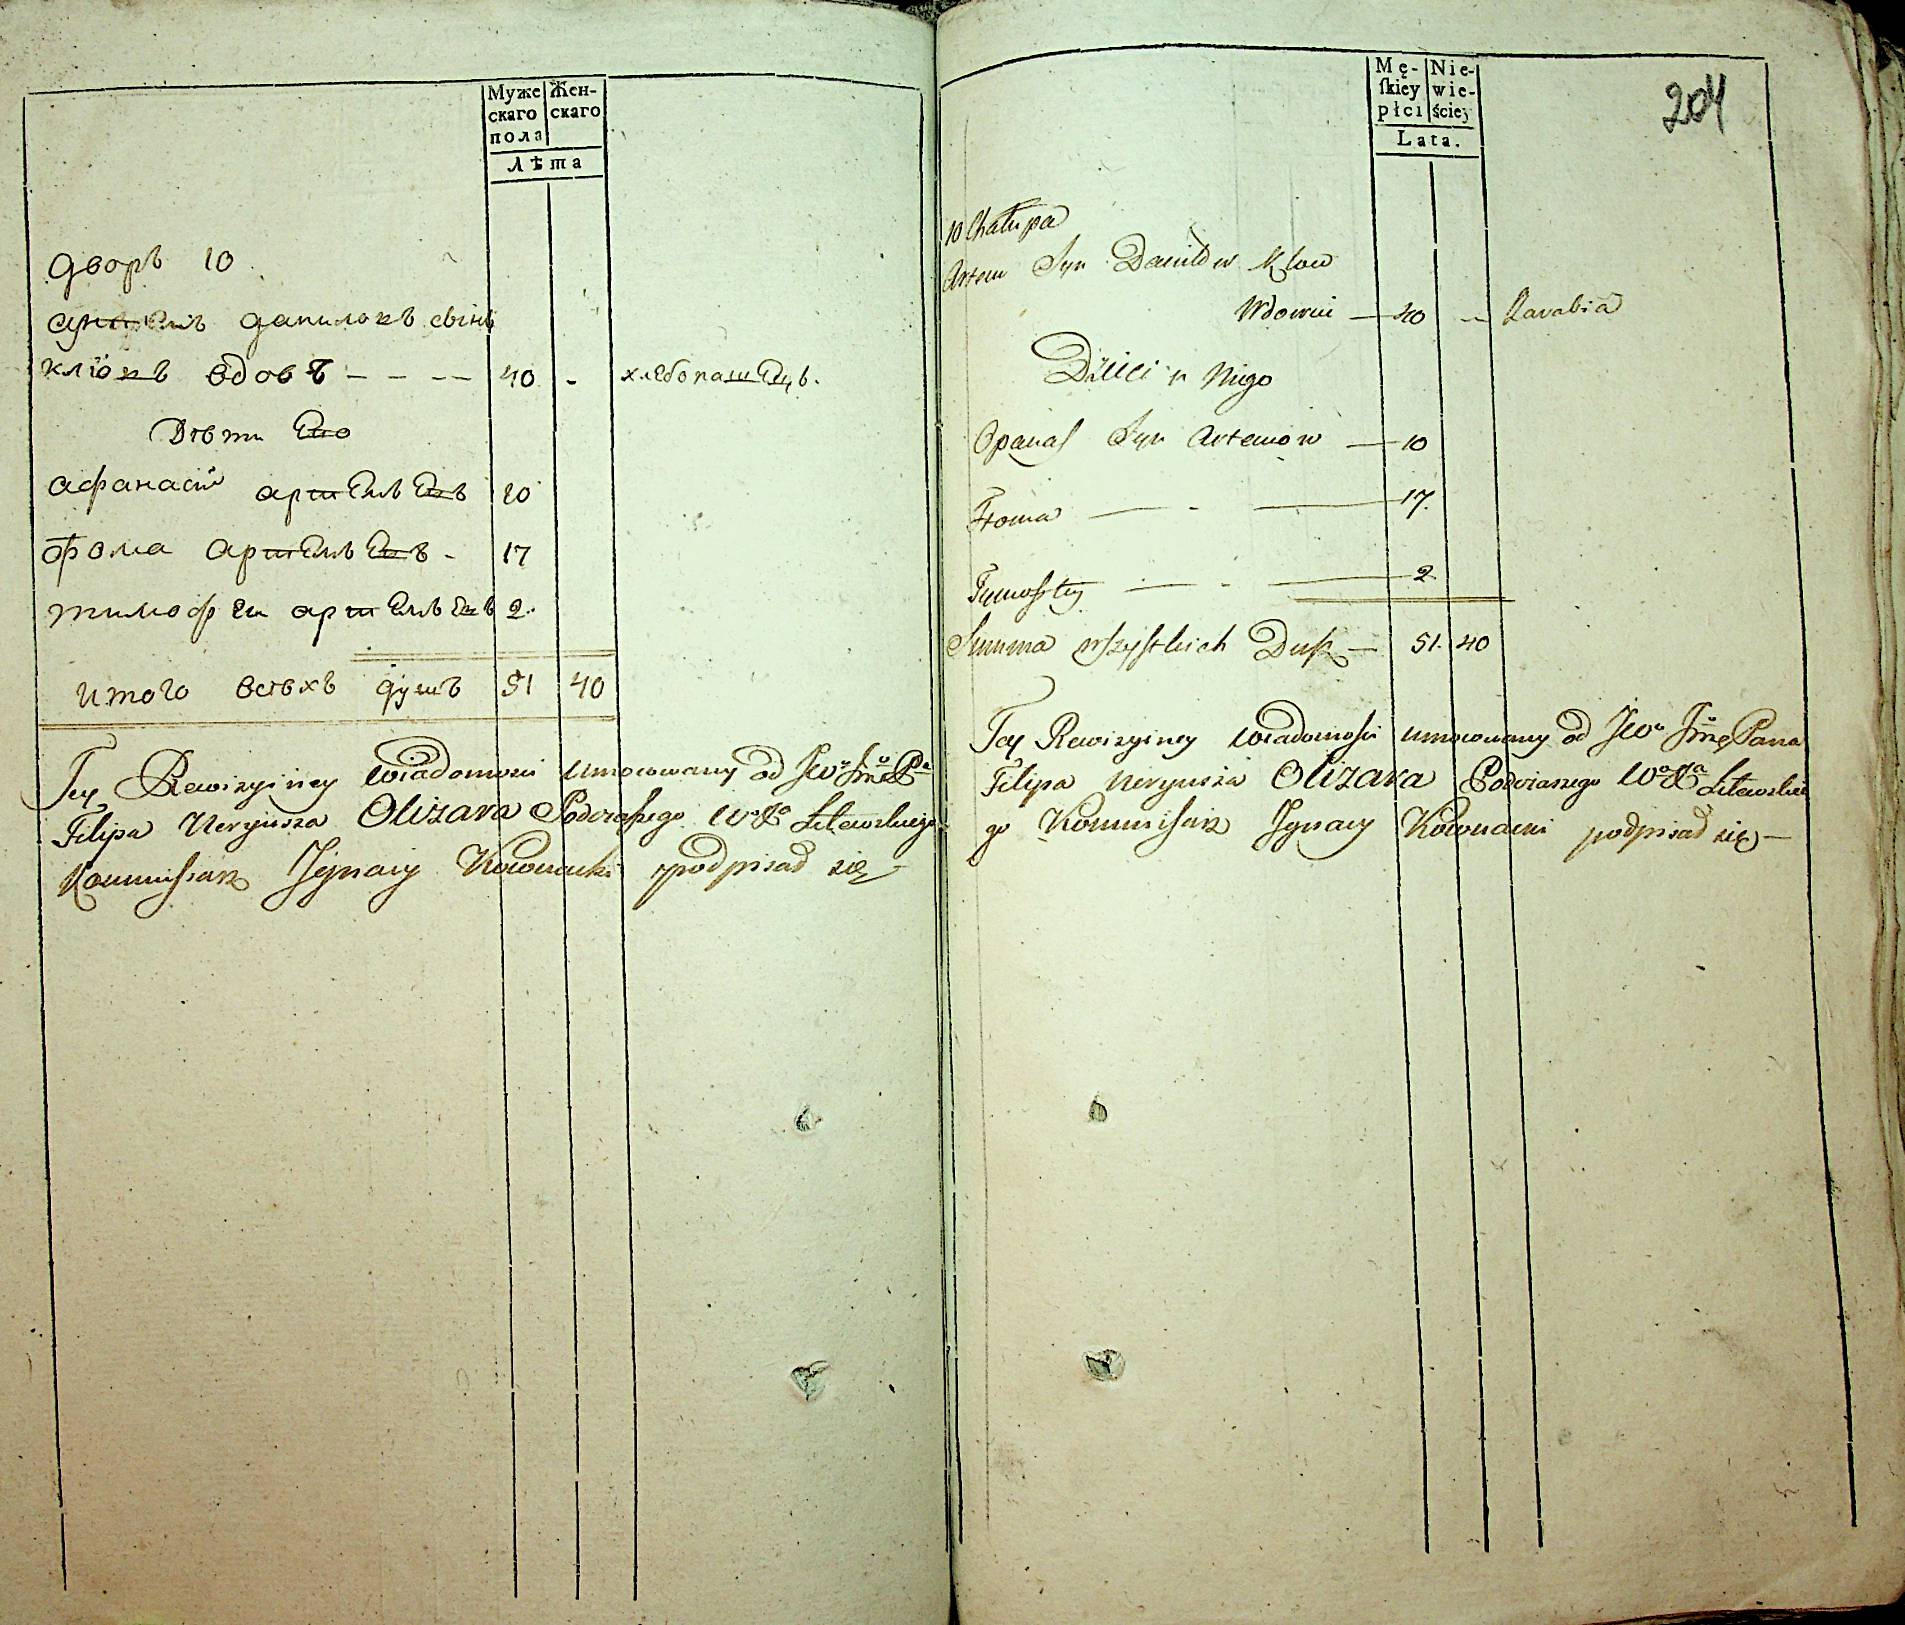 Муже
скаго
пола
Жен-
скаго
лѣта
дворъ 10
даниловъ сынъ
клювъ вдовъ 40 - хлебопашецъ.
Дѣти Ево
афанасiй артемьевъ 10
фома артемьевъ - 17
тимофеи артемьевъ 2.
итого всѣхъ душъ 51 40
Tey Rewizyiney wiadomosci umocowany od JWo Jmć Pa
Filipa Neryusza Olizara Podczaszego Wo Xo Litewskiego
Kommissarz Ignacy Kownacki podpisał się
204
Mę-
ſkiey
płci
Nie-
wie-
ściey
Lata.
10 Chałupa
Artem Syn Daniłow Klow
Wdowiec 40 Zarabia
Dzieci u Niego
Opanas Syn Artemow 10
Froma 17.
Tymofiey 2
Summa wszystkich Dusz 51. 40
Tey Rewizyiney wiadomosci umocowany od JWo Jmć Pana
Filipa Neryusza Olizara Podczaszego Wo Xa Litewskie
go Kommisarz Ignacy Kownacki podpisał się